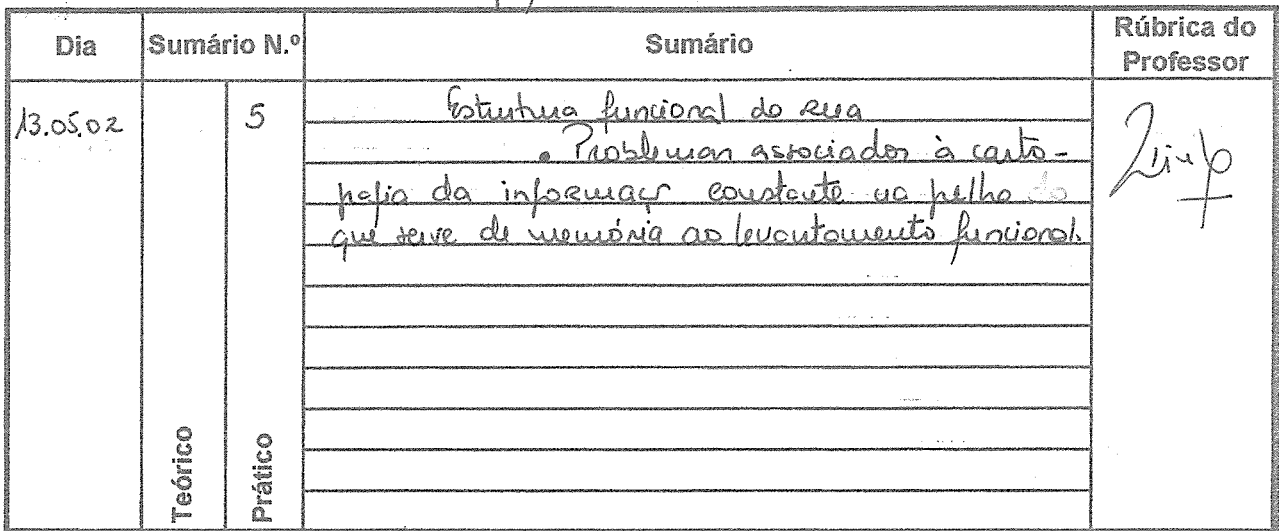 Dia Sumário N.º Sumário Rúbrica do Professor
13.05.02 5 Estrutura funcional da rua
• Problemas associados à carto-
grafia da informação constante na folha
que serve de memória ao levantamento funcional.
Teórico
Prático